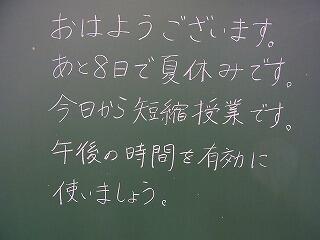 おはようございます。
あと8日で夏休みです。
今日から短縮授業です。
午後の時間を有効に
使いましょう。